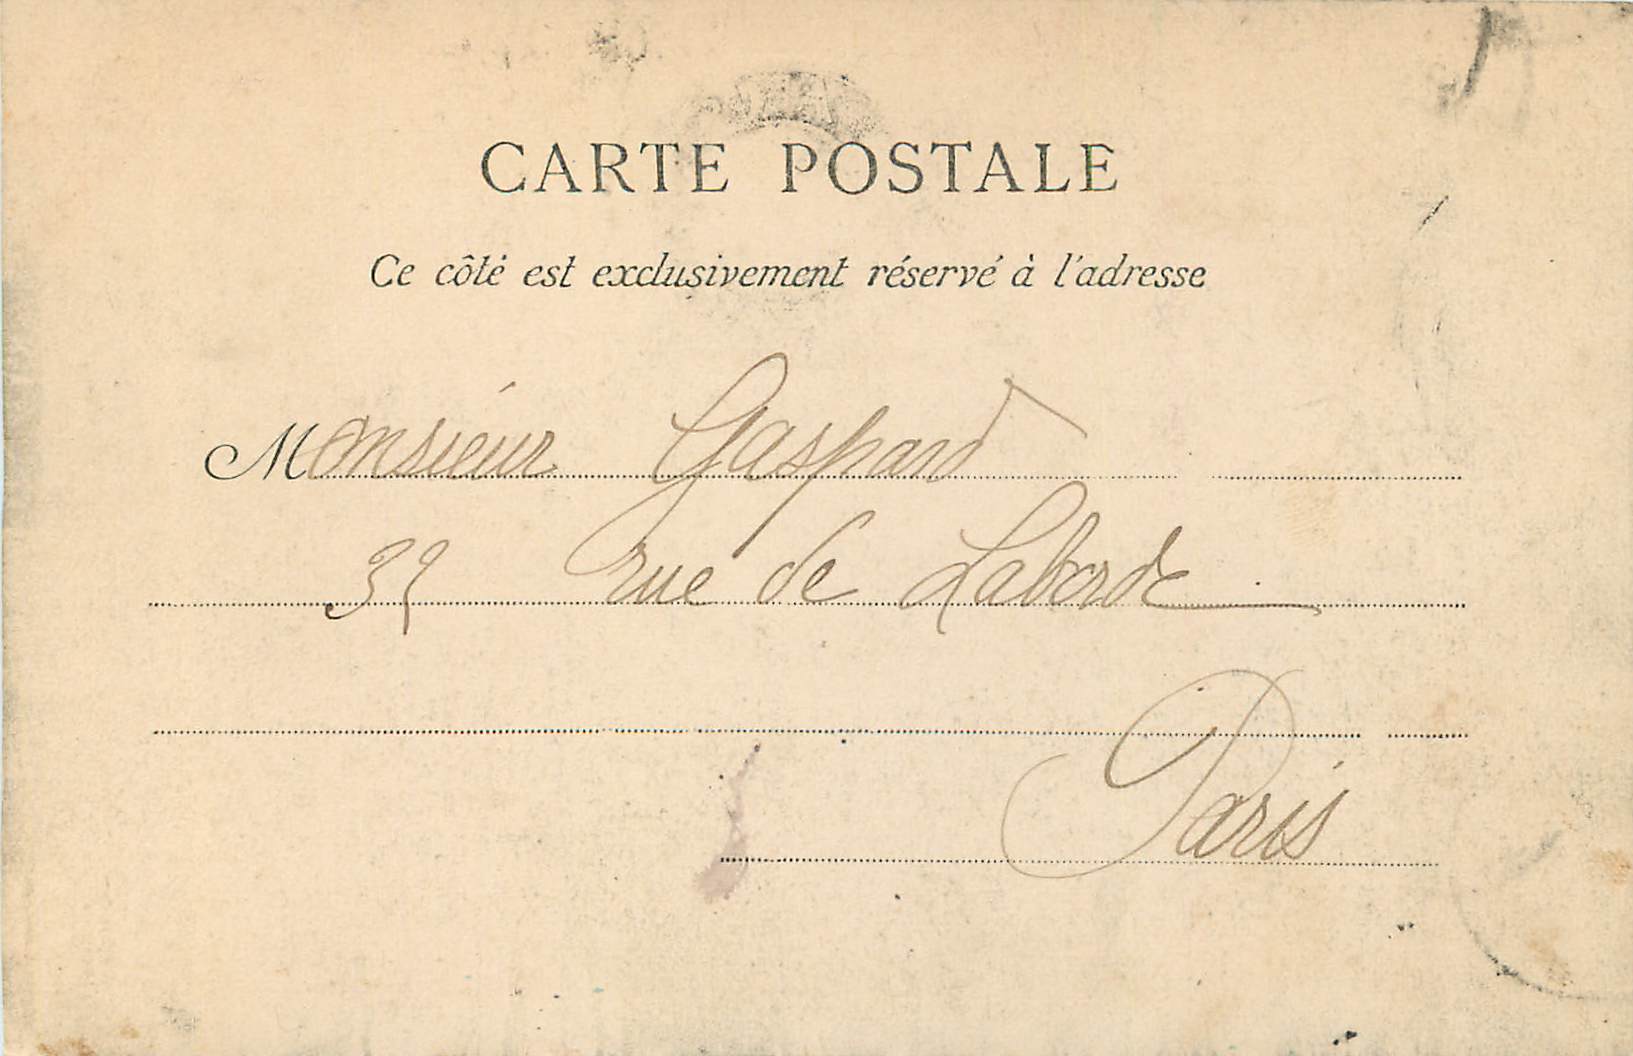 CARTE POSTALE
Ce côté est exclusivement réservé à l'adresse
Monsieur Gaspard
35 rue de Laborde
Paris